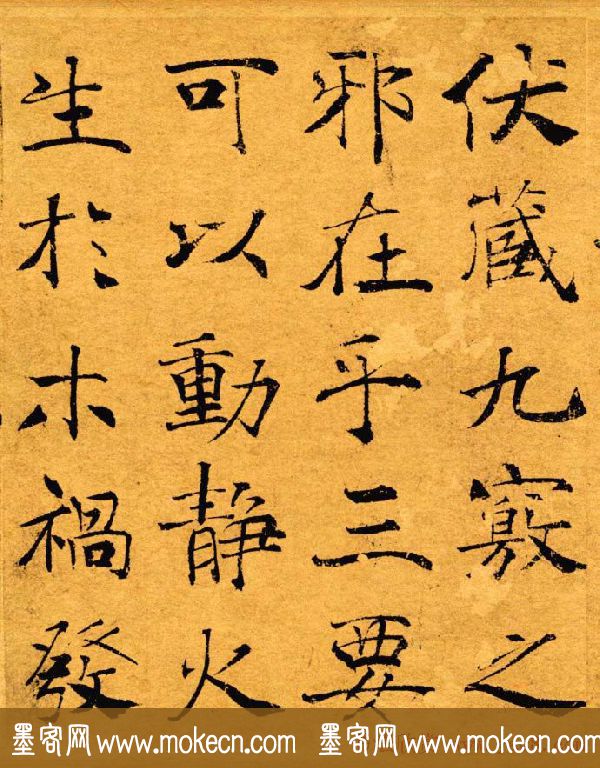 伏藏九竅之
邪在乎三要
可以動靜火
生於木禍發
墨客网 www.mokecn.com 墨客网 www.mokecn.com